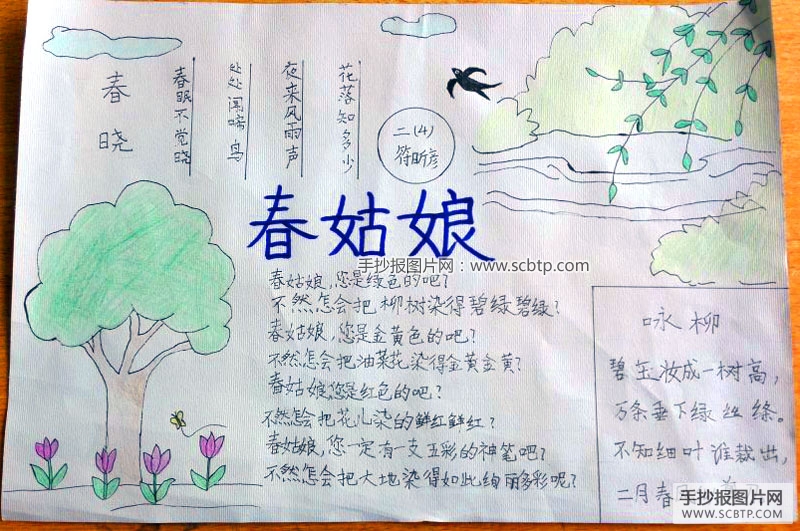 春晓
春眠不觉晓
处处闻啼鸟
夜来风雨声
花落知多少
二(4)
符昕彦
春姑娘
手抄报图片网：www.scbtp.com
春姑娘，您是绿色的吧？
不然怎会把柳树染得碧绿碧绿？
春姑娘，您是金黄色的吧？
不然怎会把油菜花染得金黄金黄？
春姑娘您是红色的吧？
不然怎会把花儿染的鲜红鲜红？
春姑娘，您一定有一支五彩的神笔吧？
不然怎会把大地染得如此绚丽多彩呢？
咏柳
碧玉妆成一树高，
万条垂下绿丝绦。
不知细叶谁裁出，
二月春
手抄报图片网
WWW.SCBTP.COM